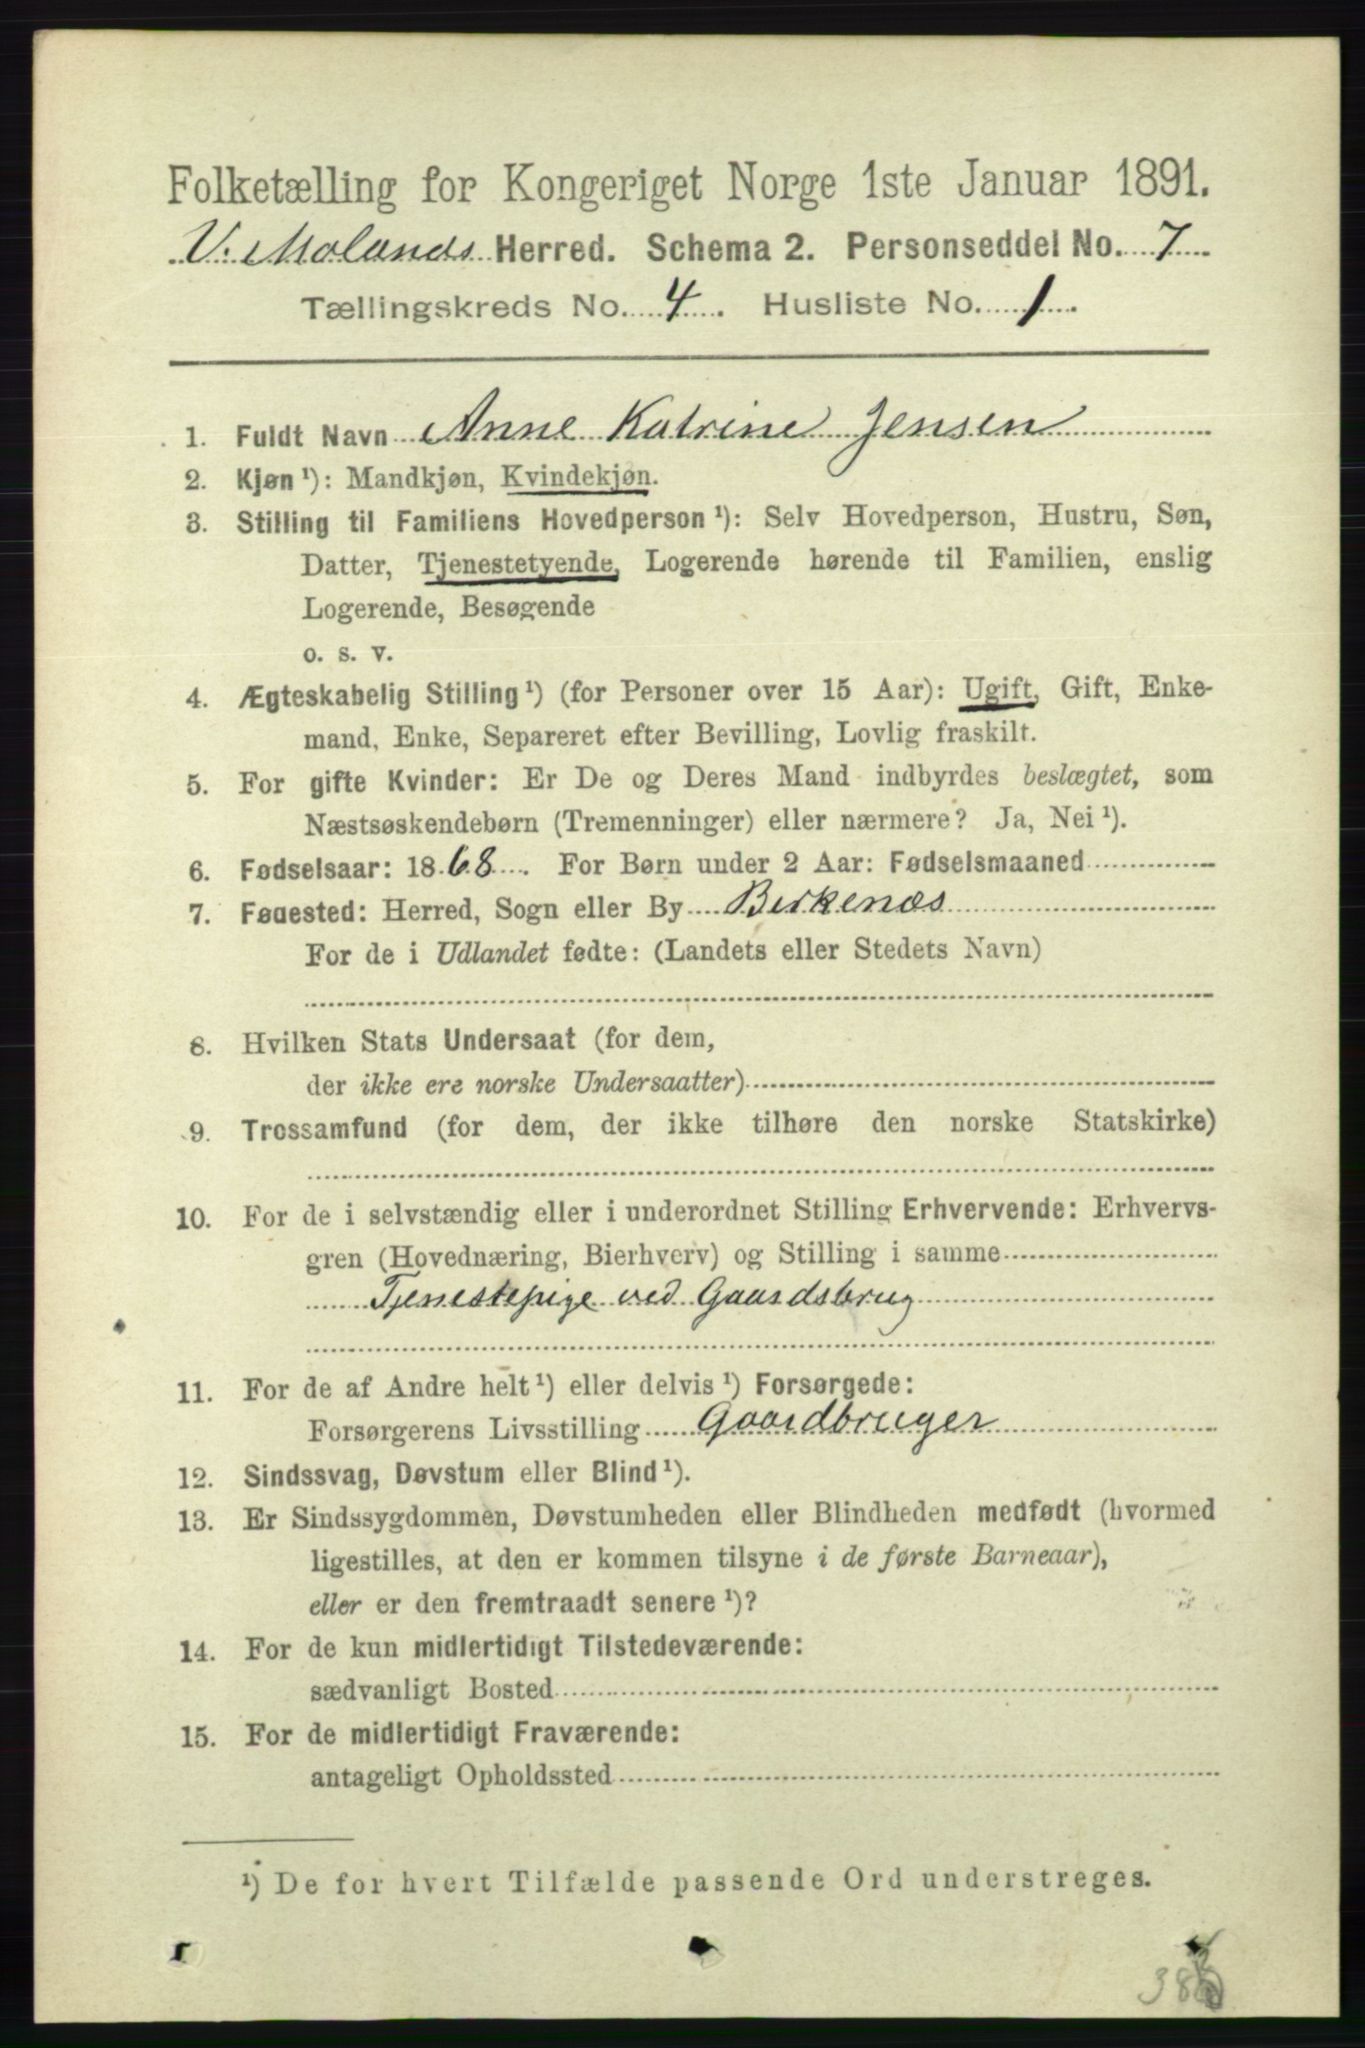 Folketælling for Kongeriget Norge 1ste Januar 1891.
V. Molands Herred. Schema 2. Personseddel No. 7
Tællingskreds No. 4. Husliste No. 1.
1. Fuldt Navn Anne Katrine Jensen
2. Kjøn ¹): Mandkjøn, Kvindekjøn.
3. Stilling til Familiens Hovedperson ¹): Selv Hovedperson, Hustru, Søn,
Datter, Tjenestetyende, Logerende hørende til Familien, enslig
Logerende, Besøgende
o. s. v.
4. Ægteskabelig Stilling ¹) (for Personer over 15 Aar): Ugift, Gift, Enke-
mand, Enke, Separeret efter Bevilling, Lovlig fraskilt.
5. For gifte Kvinder: Er De og Deres Mand indbyrdes beslægtet, som
Næstsøskendebørn (Tremenninger) eller nærmere? Ja, Nei ¹).
6. Fødselsaar: 1868. For Børn under 2 Aar: Fødselsmaaned
7. Fødested: Herred, Sogn eller By Birkenæs
For de i Udlandet fødte: (Landets eller Stedets Navn)
8. Hvilken Stats Undersaat (for dem,
der ikke ere norske Undersaatter)
9. Trossamfund (for dem, der ikke tilhøre den norske Statskirke)
10. For de i selvstændig eller i underordnet Stilling Erhvervende: Erhvervs-
gren (Hovednæring, Bierhverv) og Stilling i samme
Tjenestepige ved Gaardsbrug
11. For de af Andre helt ¹) eller delvis ¹) Forsørgede:
Forsørgerens Livsstilling Gaardbruger
12. Sindssvag, Døvstum eller Blind ¹).
13. Er Sindssygdommen, Døvstumheden eller Blindheden medfødt (hvormed
ligestilles, at den er kommen tilsyne i de første Barneaar),
eller er den fremtraadt senere ¹)?
14. For de kun midlertidigt Tilstedeværende:
sædvanligt Bosted
15. For de midlertidigt Fraværende:
antageligt Opholdssted
¹) De for hvert Tilfælde passende Ord understreges.